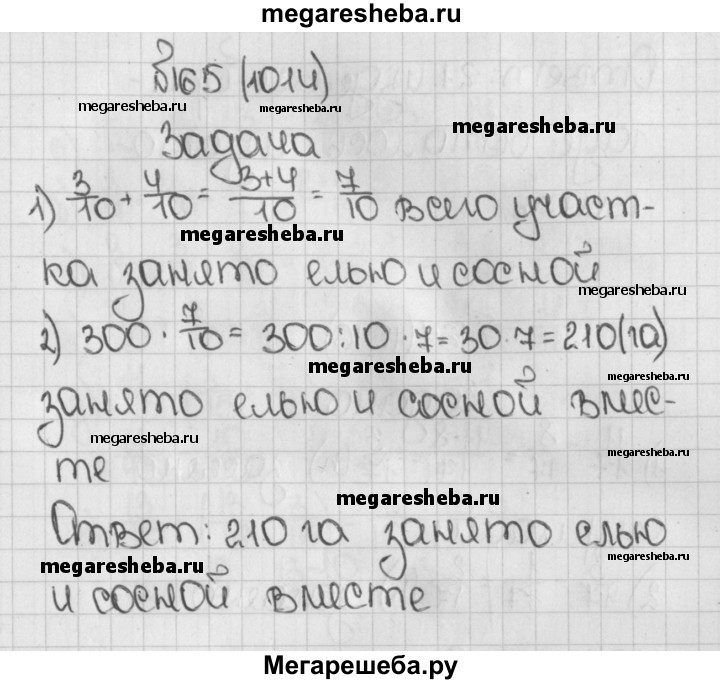 megaresheba.ru
№165 (1014)
megaresheba.ru megaresheba.ru
megaresheba.ru
Задача
1) 3/10 + 4/10 = 3+4/10 = 7/10 всего участ-
megaresheba.ru
ка занято елью и сосной
megaresheba.ru
2) 300 · 7/10 = 300:10 · 7 = 30 · 7 = 210 (га)
megaresheba.ru
занято елью и сосной вмес-
megaresheba.ru megaresheba.ru
те
megaresheba.ru
Ответ: 210 га занято елью
megaresheba.ru megaresheba.ru
и сосной вместе
Мегарешеба.ру